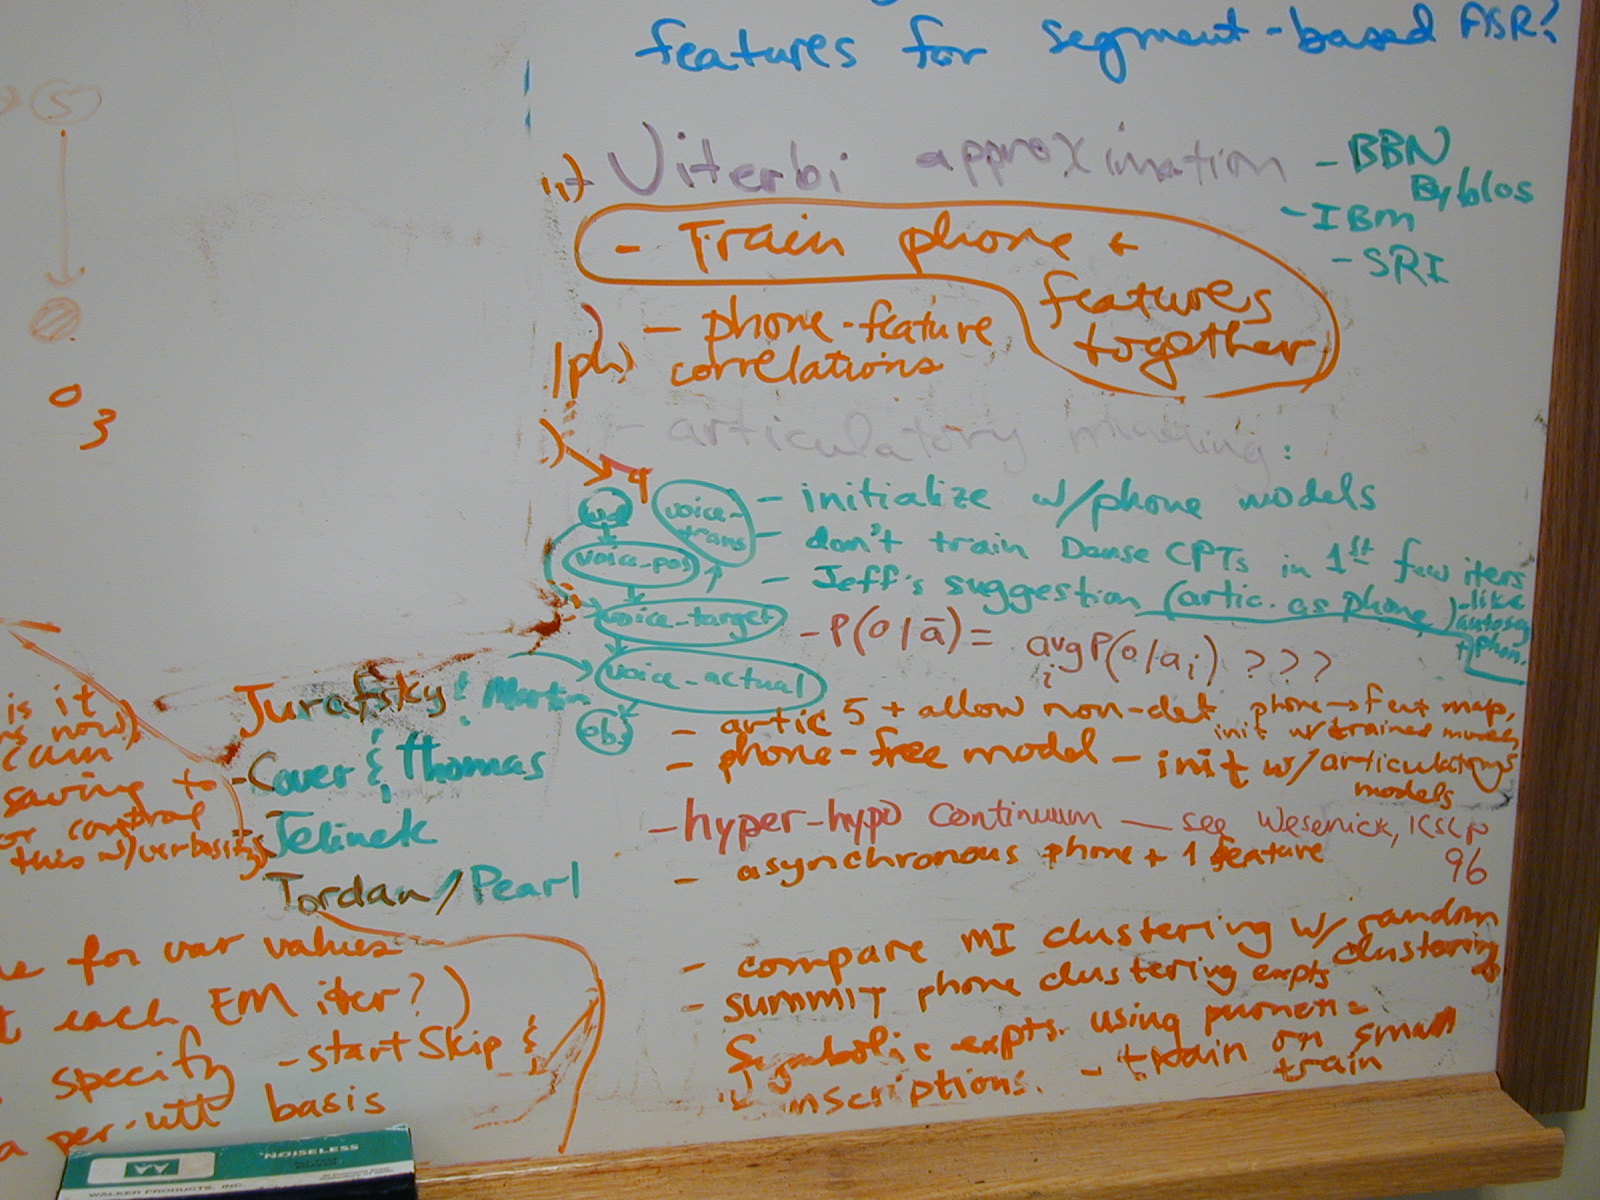 features for segment-based ASR?
Viterbi approximation
- BBN
Byblos
- IBM
- SRI
- Train phone +
features
together
- phone-feature
correlations
|ph)
- articulatory
S
O
3
4
wd
voice-
trans
voice-pos
voice-target
voice-actual
obs
- initialize w/phone models
- don't train Dense CPTs in 1st few iters
- Jeff's suggestion (artic. as phone) - like
autoseg
phon.
- P(o|ā) = avg P(o|ai) ???
i
- artic 5 + allow non-det phone→feat map,
init w/trained models
- phone-free model - init w/ articulatory
models
- hyper-hypo continuum — see Wesenick, ICSLP
96
- asynchronous phone + 1 feature
- compare MI clustering w/ random
clustering
- SUMMIT phone clustering expts
Symbolic expts. using phonetic
- train on small
train
Jurafsky & Martin
- Cover & Thomas
Jelinek
Jordan/Pearl
is it
now)
saving to
or control
this w/verbosity
for var values
each EM iter?)
specify -startSkip &
a per-utt basis
NOISELESS
WALKER PRODUCTS, INC.